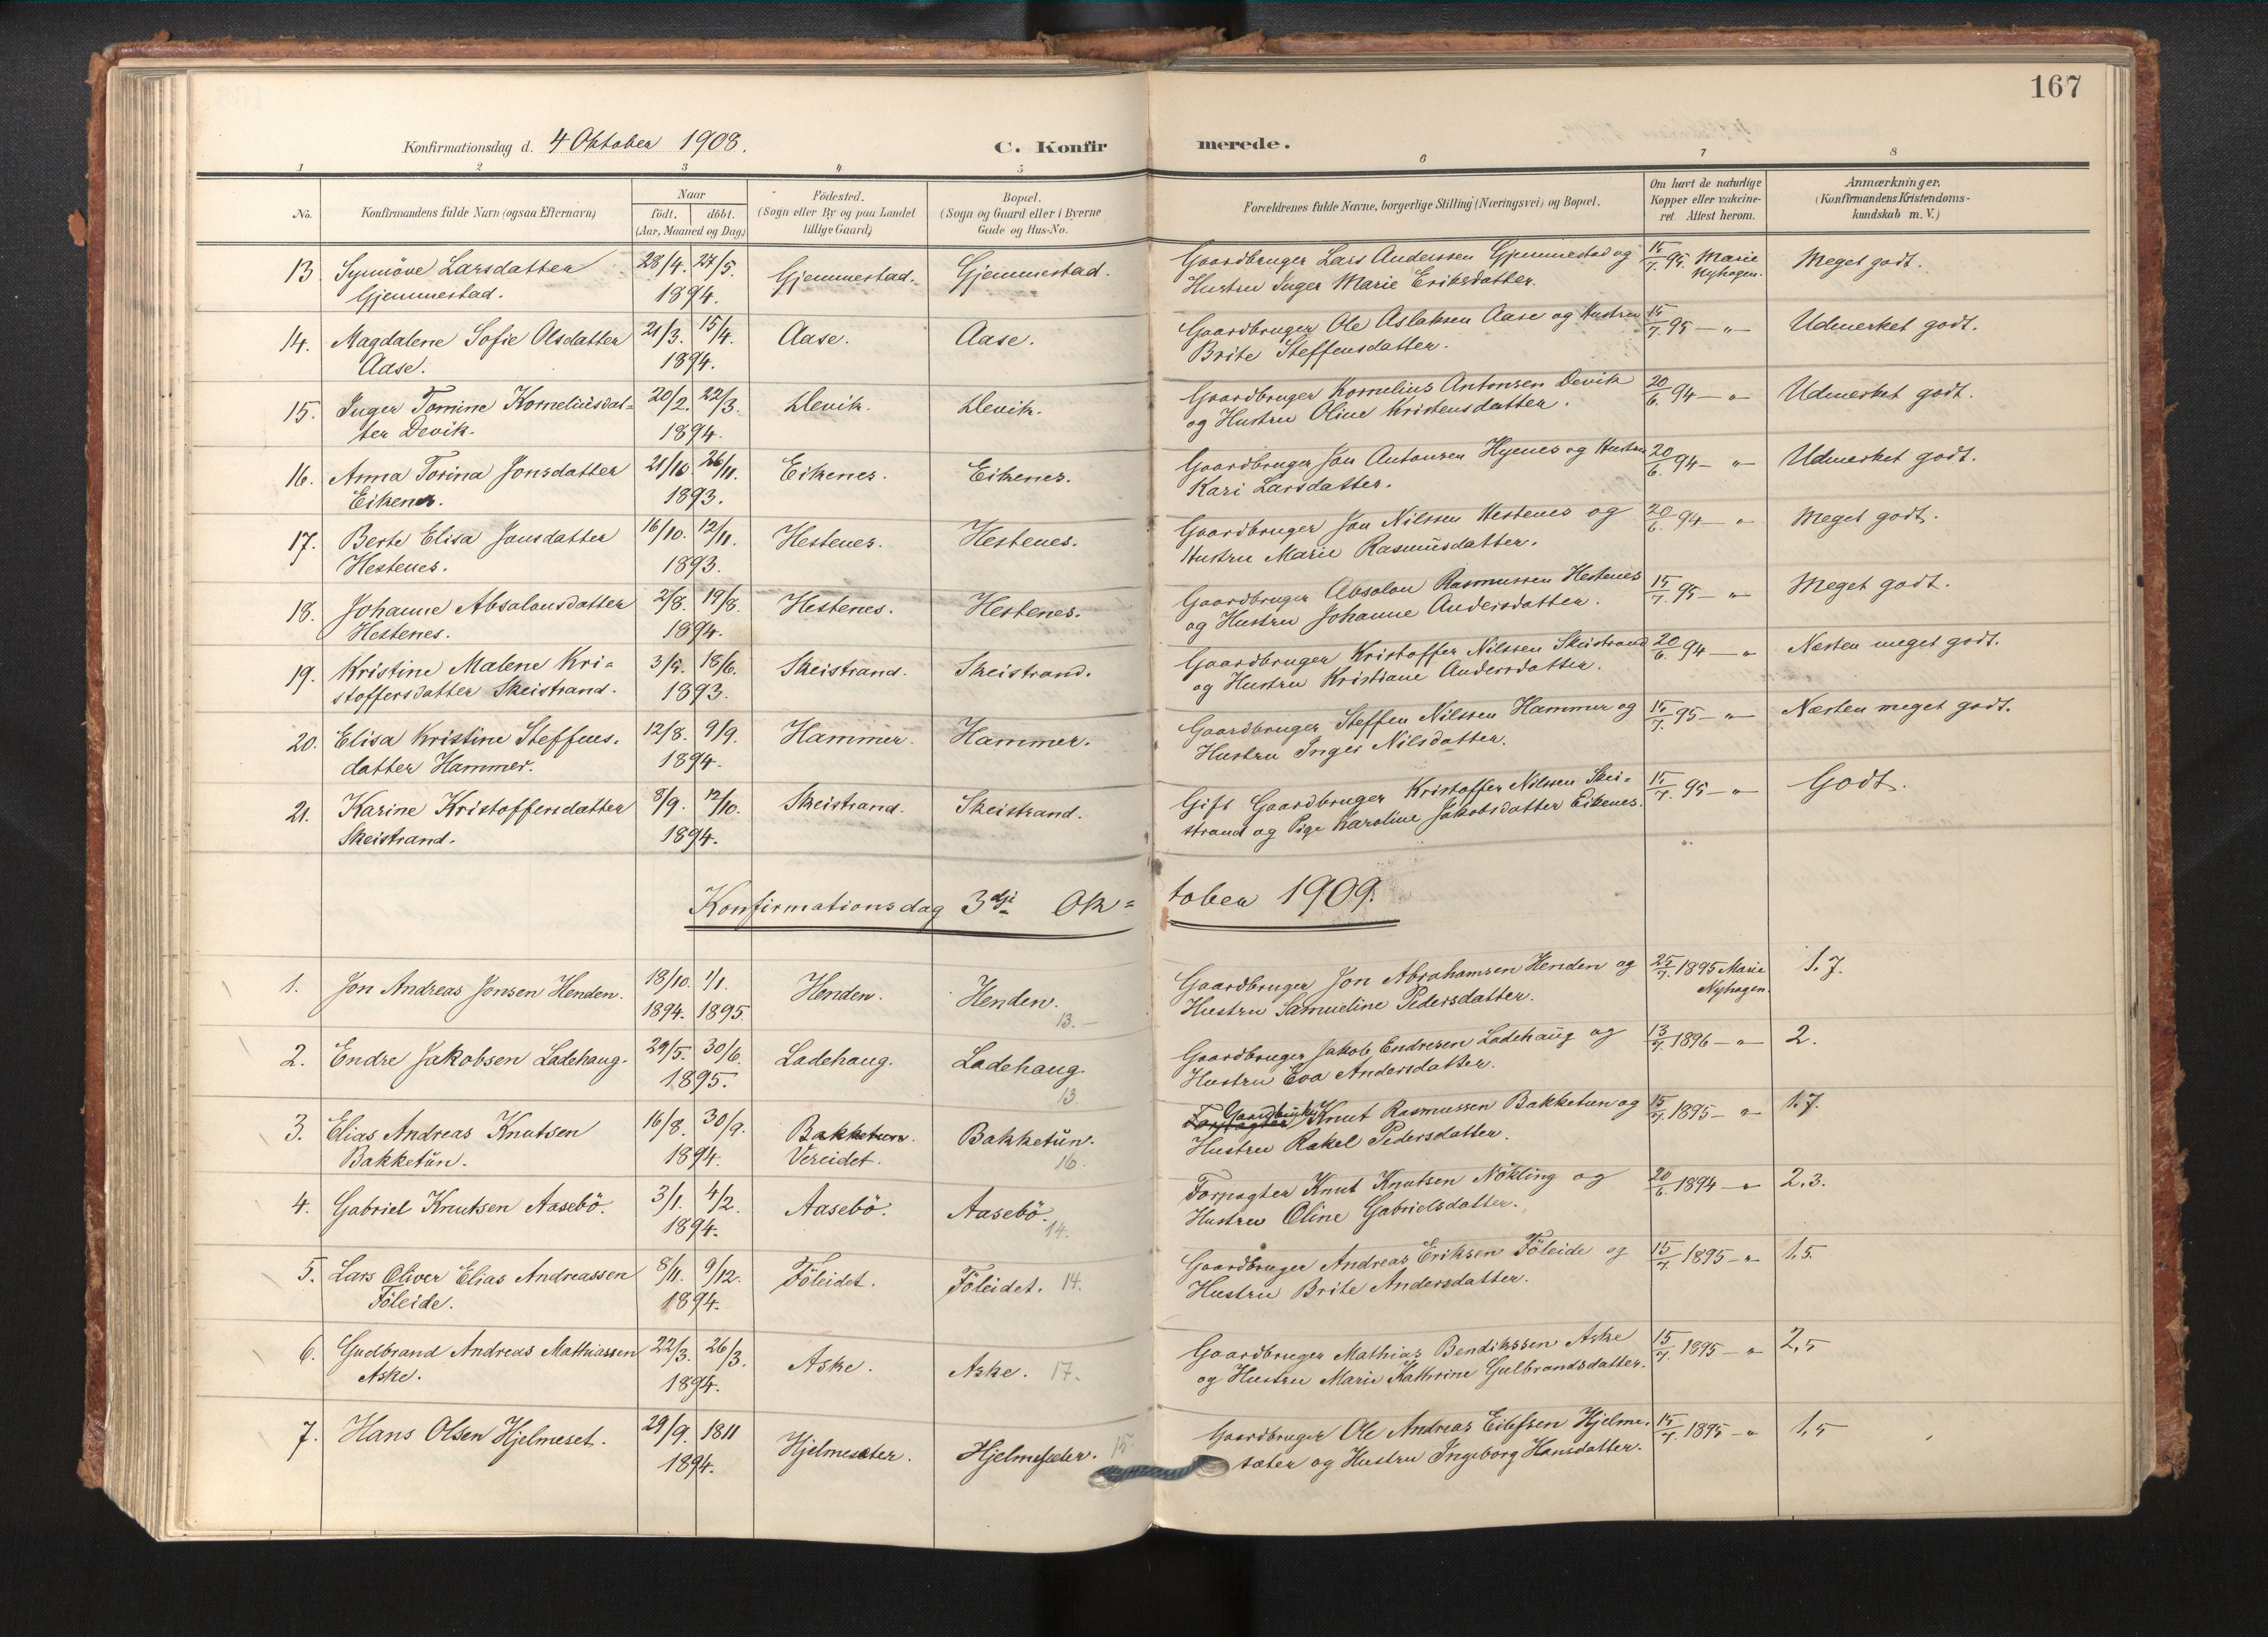 167
Konfirmationsdag d. 4 Oktober 1908. C. Konfirmerede.
1 2 3 4 5 6 7 8
No. Konfirmandens fulde Navn (ogsaa Efternavn) Naar født. døbt. (Aar, Maaned og Dag) Födested. (Sogn eller By og paa Landet tillige Gaard) Bopæl. (Sogn og Gaard eller i Byerne Gade og Hus-No. Forældrenes fulde Navne, borgerlige Stilling (Næringsvei) og Bopæl. Om havt de naturlige Kopper eller vakcineret Attest herom. Anmærkninger. (Konfirmandens Kristendomskundskab m. V.)
13. Synnöve Larsdatter 28/4. 27/5. Gjemmestad. Gjemmestad. Gaardbruger Lars Anderssen Gjemmestad og 15/7. 95. Marie Meget godt.
Gjemmestad. 1894. Hustru Inger Marie Eriksdatter. Nyhagen.
14. Magdalene Sofie Olsdatter 21/3. 15/4. Aase. Aase. Gaardbruger Ole Aslaksen Aase og Hustru 15/7. 95 — „ — Udmerket godt.
Aase. 1894. Brite Steffensdatter.
15. Inger Tomine Korneliusdat= 20/2. 22/3. Devik. Devik. Gaardbruger Kornelius Antonsen Devik 20/6. 94 — „ Udmerket godt.
ter Devik. 1894. og Hustru Oline Kristensdatter.
16. Anna Torina Jonsdatter 21/10. 26/11. Eikenes. Eikenes. Gaardbruger Jon Antonsen Hyenes og Hustru 20/6. 94 — „ Udmerket godt.
Eikenes. 1893. Kari Larsdatter.
17. Berte Elisa Jonsdatter 16/10. 12/11. Hestenes. Hestenes. Gaardbruger Jon Nilssen Hestenes og 20/6. 94 — „ Meget godt.
Hestenes. 1893. Hustru Marie Rasmusdatter.
18. Johanne Absalonsdatter 2/8. 19/8. Hestenes. Hestenes. Gaardbruger Absalon Rasmussen Hestenes 15/7. 95 — „ Meget godt.
Hestenes. 1894. og Hustru Johanne Andersdatter.
19. Kristine Malene Kri= 3/5. 18/6. Skeistrand. Skeistrand. Gaardbruger Kristoffer Nilssen Skeistrand 20/6. 94 — „ Næsten meget godt.
stoffersdatter Skeistrand. 1893. og Hustru Kristiane Andersdatter.
20. Elisa Kristine Steffens. 12/8. 9/9. Hammer. Hammer. Gaardbruger Steffen Nilssen Hammer og 15/7. 95 — „ — Næsten meget godt.
datter Hammer. 1894. Hustru Inger Nilsdatter.
21. Karine Kristoffersdatter 8/9. 12/10. Skeistrand. Skeistrand. Gift Gaardbruger Kristoffer Nilssen Skei= 15/7. 95 — „ Godt.
Skeistrand. 1894. strand og Pige Karoline Jakobsdatter Eikenes.
Konfirmationsdag 3dje Ok=tober 1909.
1. Jon Andreas Jonsen Henden. 18/10. 1/1. Henden. Henden. Gaardbruger Jon Abrahamsen Henden og 25/7. 1895 Marie 1.7.
1894. 1895. 13. — Hustru Samueline Pedersdatter. Nyhagen.
2. Endre Jakobsen Ladehaug. 29/5. 30/6. Ladehaug. Ladehaug. Gaardbruger Jakob Endresen Ladehaug og 13/7. 1896 — „ — 2.
1895. 13. Hustru Eva Andersdatter.
3. Elias Andreas Knutsen 16/8. 30/9. Bakketun. Bakketun. Forpagter Gaardbruker Knut Rasmussen Bakketun og 15/7. 1895 — „ 1.7.
Bakketun. 1894. Vereidet. 16. Hustru Rakel Pedersdatter.
4. Gabriel Knutsen Aasebö. 3/1. 4/2. Aasebö. Aasebö. Forpagter Knut Knutsen Nökling og 20/6. 1894 — „ 2.3.
1894. 14. Hustru Oline Gabrielsdatter.
5. Lars Oliver Elias Andreassen 8/11. 9/12. Föleidet. Föleidet. 14. Gaardbruger Andreas Eriksen Föleide og 15/7. 1895 — „ 1,5.
Föleide. 1894. Hustru Brite Andersdatter.
6. Gudbrand Andreas Mathiassen 22/3. 26/3. Aske. Aske. 17. Gaardbruger Mathias Bendikssen Aske 15/7. 1895 — „ 2,5
Aske. 1894. og Hustru Marie Kathrine Gulbrandsdatter.
7. Hans Olsen Hjelmeset. 29/9. 18 11 Hjelmeseter. Hjelmeseter. 15. Gaardbruger Ole Andreas Eilefsen Hjelme. 15/7. 1895 — „ 1,5
1894. sæter og Hustru Ingeborg Hansdatter.